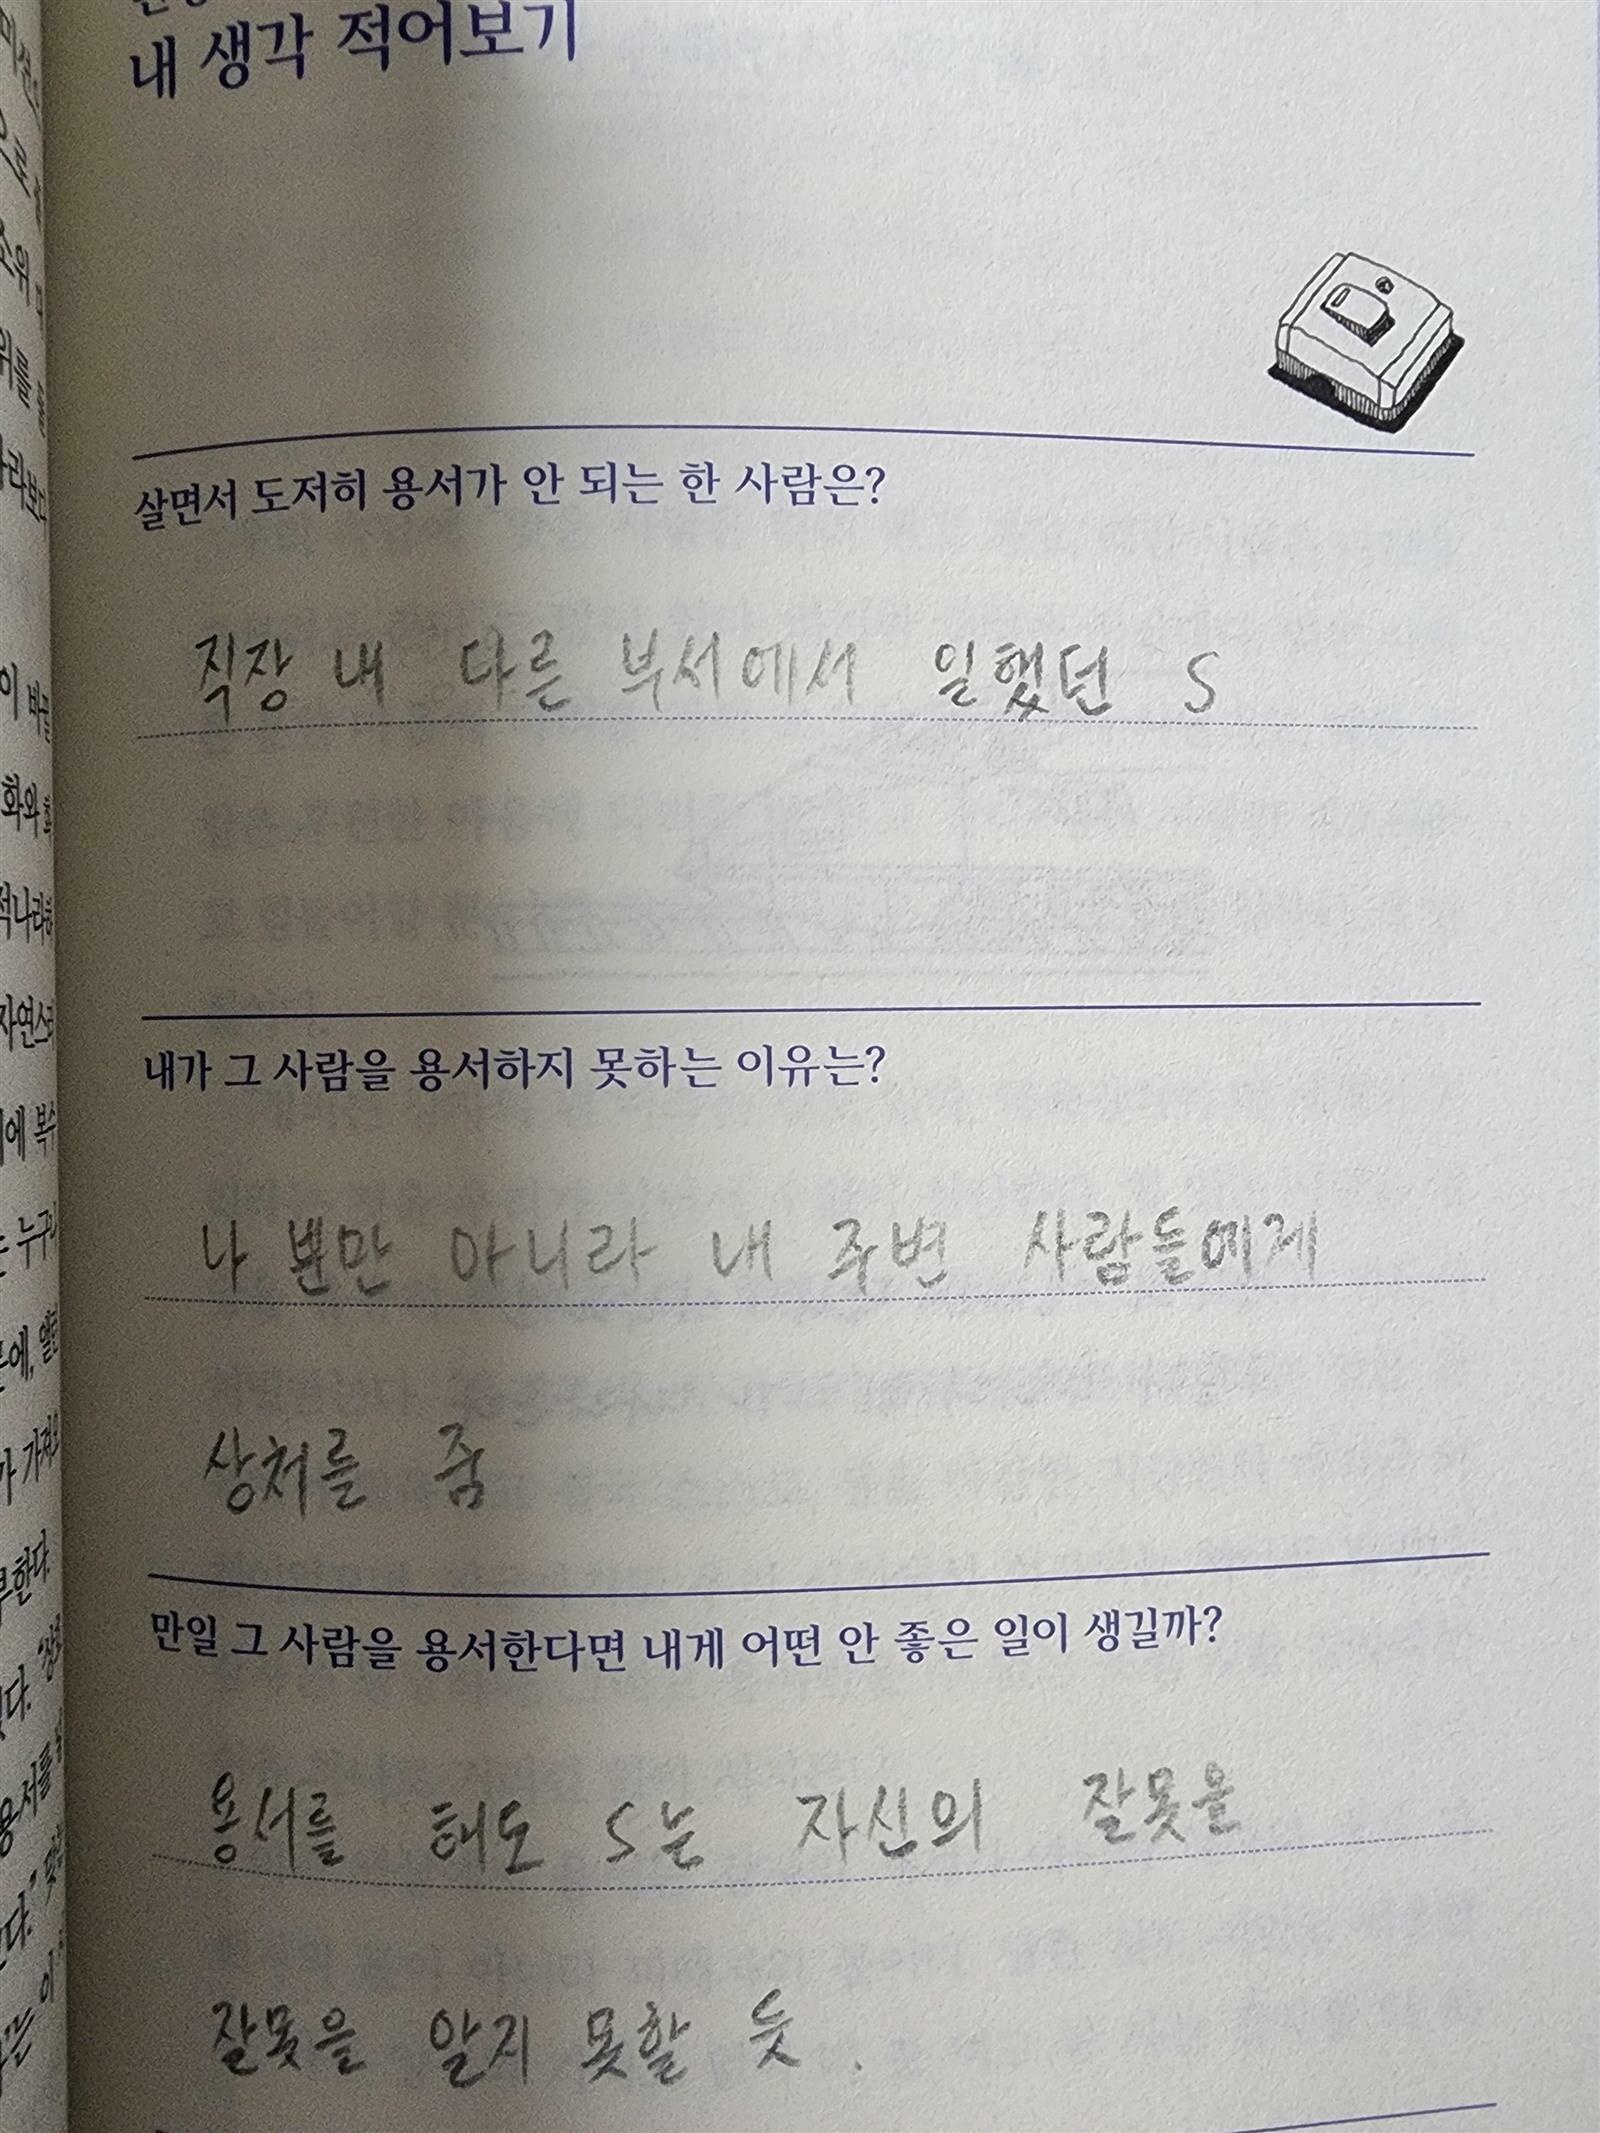 내 생각 적어보기
살면서 도저히 용서가 안 되는 한 사람은?
직장 내 다른 부서에서 일했던 S
내가 그 사람을 용서하지 못하는 이유는?
나 뿐만 아니라 내 주변 사람들에게
상처를 줌
만일 그 사람을 용서한다면 내게 어떤 안 좋은 일이 생길까?
용서를 해도 S는 자신의 잘못을
잘못을 알지 못할 듯.